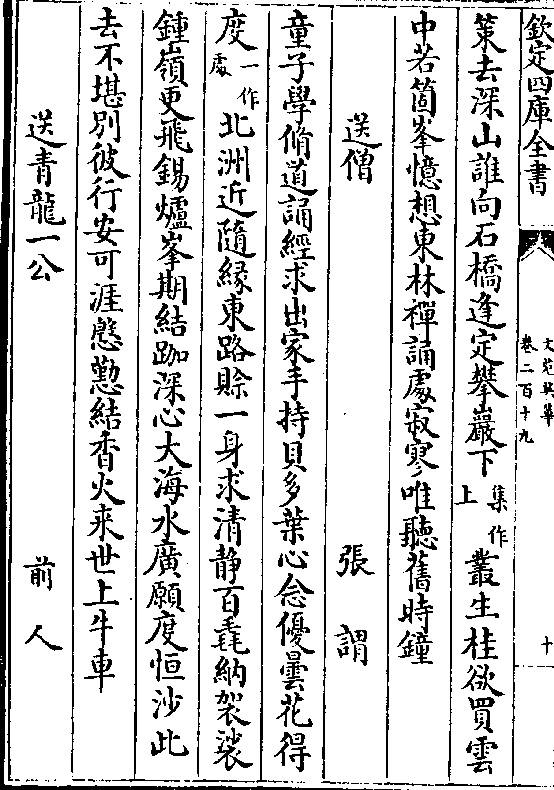 欽定四庫全書
文苑英華
卷二百十九
十
策去深山誰向石橋逢定攀巖下集作上叢生桂欲買雲
中若箇峯憶想東林禪誦處寂寥唯聽舊時鐘
送僧 張謂
童子學脩道誦經求出家手持貝多葉心念優曇花得
度一作處北洲近隨緣東路賒一身求清静百毳納袈裟
鍾嶺更飛錫爐峯期結跏深心大海水廣願度恒沙此
去不堪別彼行安可涯慇懃結香火来世上牛車
送青龍一公 前人